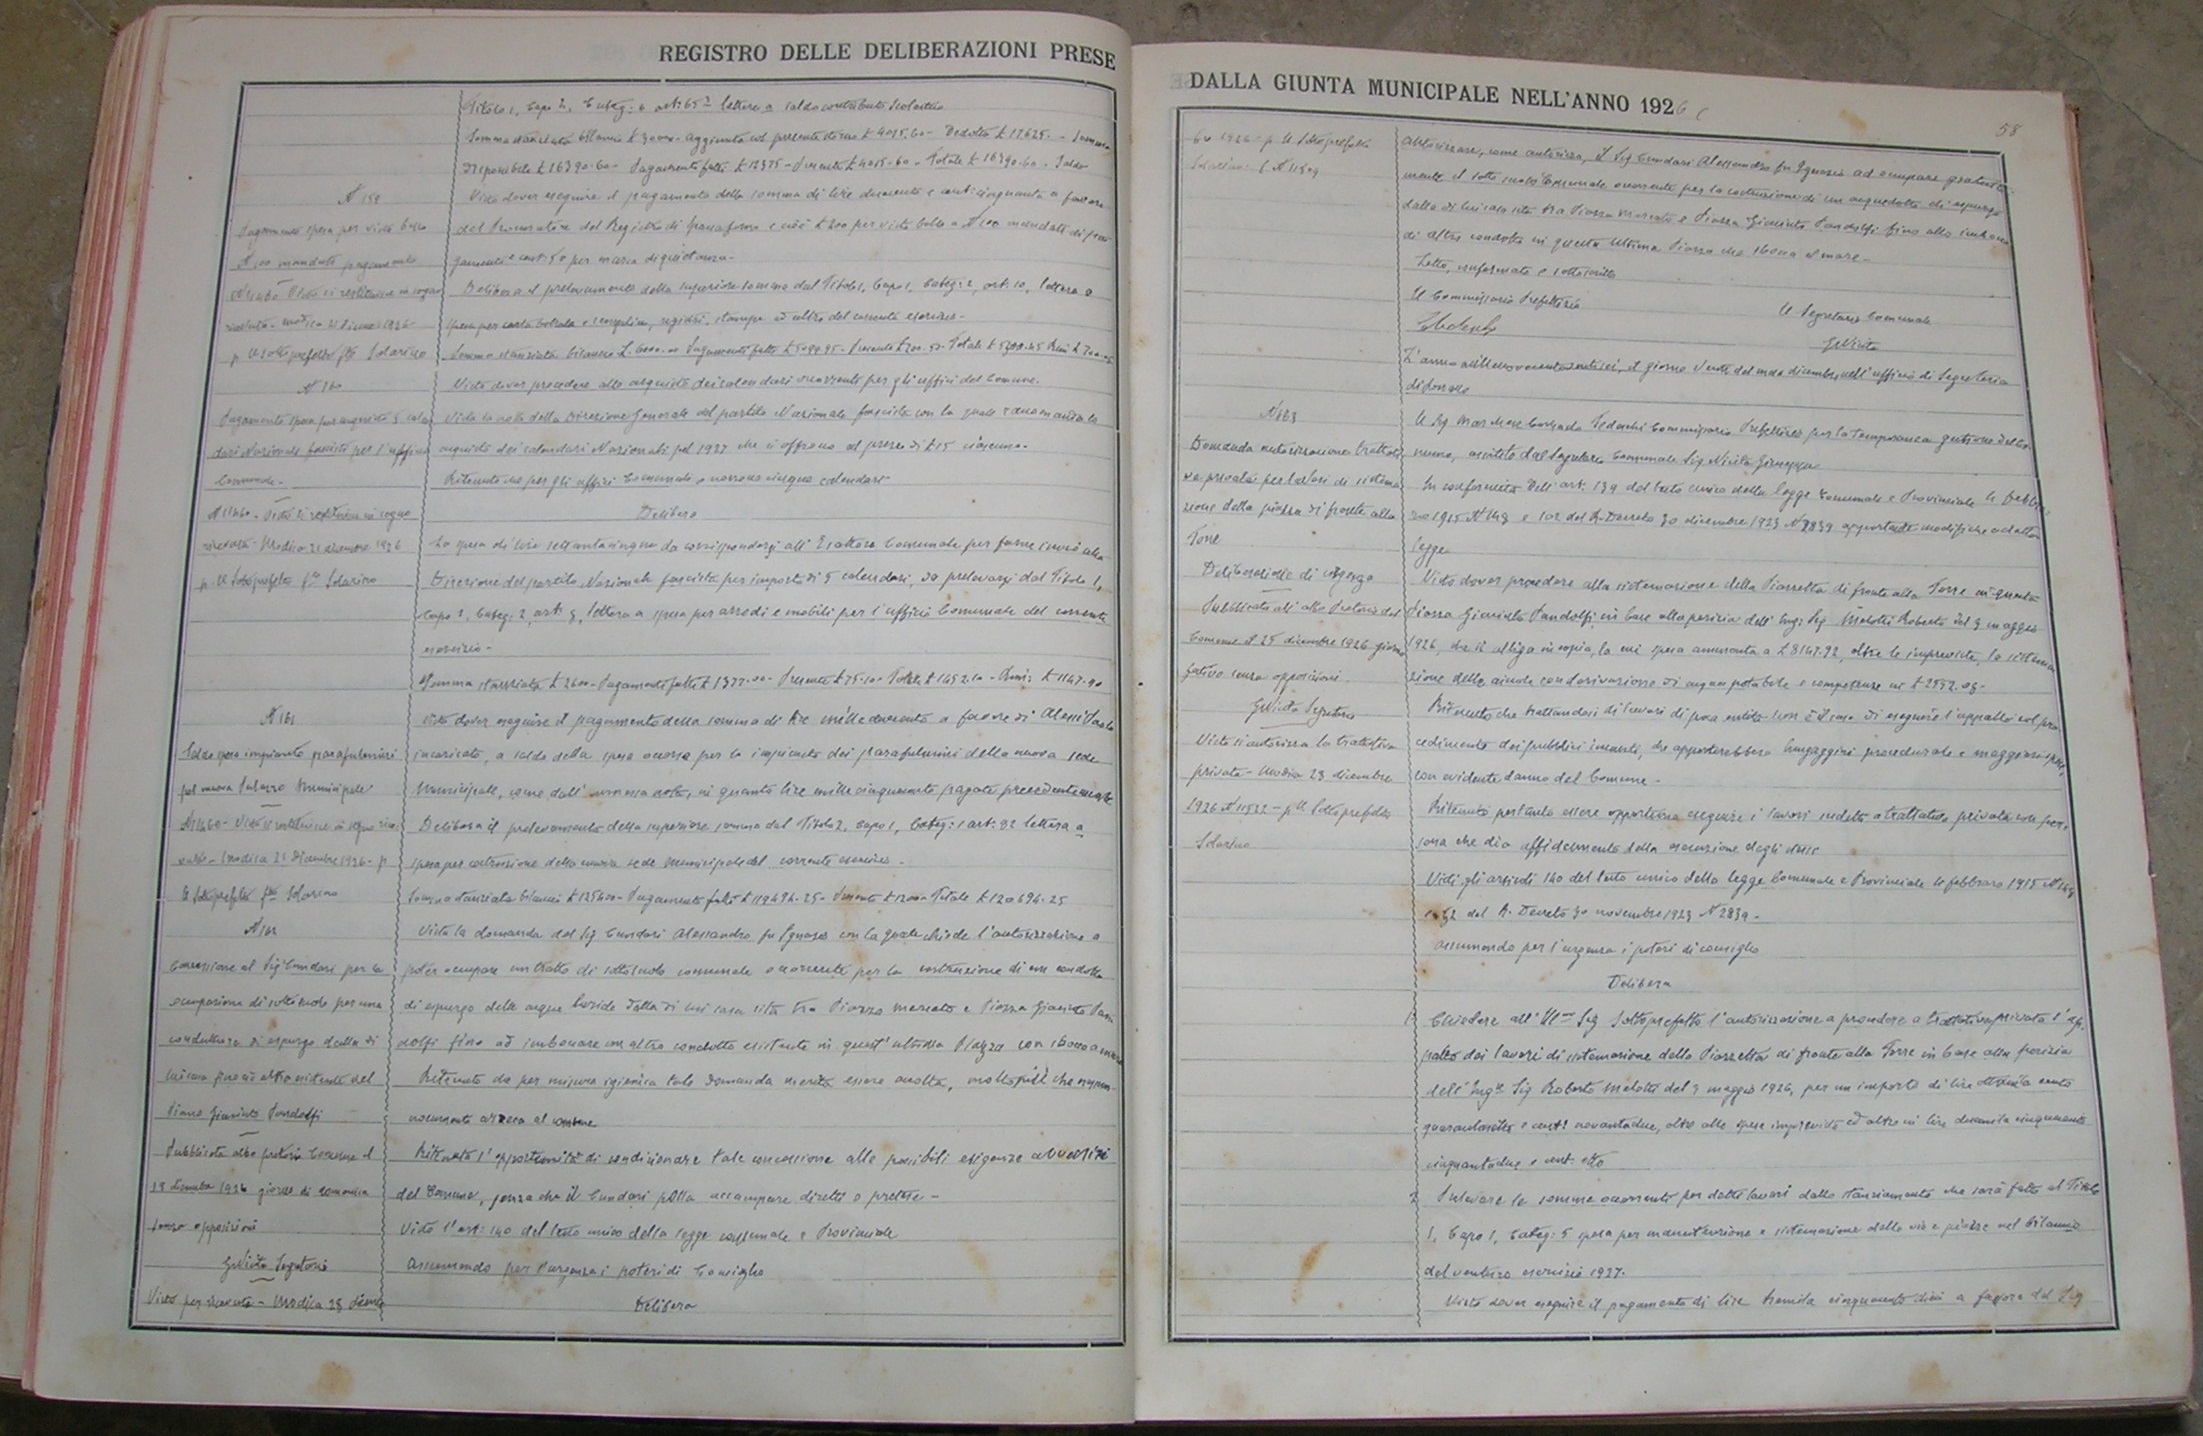 REGISTRO DELLE DELIBERAZIONI PRESE
Titolo 1, Capo 2, Categ: 6 art: 65 lettera a saldo contributo scolastico
Somma stanziata bilancio £ aggiunta col presente storno £ 4015.60 - Dedotto £ 17625. - Somma
disponibile £ 16390.60 - Pagamenti fatti £ 12375 - Presente £ 4015.60 - Totale £ 16390.60 - Saldo
N 159
Visto dover eseguire il pagamento della somma di lire duecento e cent: cinquanta a favore
Pagamento spesa per visto bollo
del Procuratore del Registro di e cioè £ 200 per visto bollo a N 100 mandati di pa
N 100 mandati pagamento
gamento e cent: 50 per marca di quietanza -
N 11460 Visto si restituisce in segno
Delibera il prelevamento della superiore somma dal Titolo 1, Capo 1, Categ: 2, art: 10, lettera a
ricevuta - Modica 21 Dicembre 1926
spesa per carta bollata e semplice, registri, stampe ed altro del corrente esercizio -
p. Il Sottoprefetto fto Solarino
Somma stanziata bilancio £ 6000.00 Pagamenti fatti £ 5099.95 - Presente £ 200.50 - Totale £
N 160
Visto dover procedere allo acquisto dei calendari occorrenti per gli uffici del Comune.
Pagamento spesa per acquisto 5 calen
Vista la nota della Direzione Generale del partito Nazionale fascista con la quale raccomanda lo
dari Nazionale fascisti per l'ufficio
acquisto dei calendari Nazionali pel 1927 che si offrono al prezzo di £ 15 ciascuno -
Comunale -
Ritenuto che per gli uffici Comunali occorrono cinque calendari
N 11460 - Visto si restituisce in segno
Delibera
ricevuta - Modica 21 dicembre 1926
La spesa di lire settantacinque da corrispondersi all' Esattore Comunale per farne invio alla
p. Il Sottoprefetto fto Solarino
Direzione del partito Nazionale fascista per importo di 5 calendari, da prelevarsi dal Titolo 1,
Capo 1, Categ: 2, art 9, lettera a spesa per arredi e mobili per l'ufficio Comunale del corrente
esercizio -
Somma stanziata £ 2600 - Pagamenti fatti £ 1377.00 - Presente £ 75.10 - Totale £ 1452.10 - Rim: £ 1147.90
N 161
Visto dover eseguire il pagamento della somma di lire mille duecento a favore di Alessi Paolo
Saldo spesa impianto parafulmini
incaricato, a saldo della spesa occorsa per lo impianto dei parafulmini della nuova sede
pel nuovo Palazzo Municipale
Municipale, come dall' annessa nota, in quanto lire mille cinquecento pagate precedentemente
N 11460 - Visto si restituisce in segno rice
Delibera il prelevamento della superiore somma dal Titolo 2, Capo 1, Categ: 1 art: 82 lettera a
vuta - Modica 21 Dicembre 1926 - p.
spesa per costruzione della nuova sede Municipale del corrente esercizio -
Il Sottoprefetto fto Solarino
Somma stanziata bilancio £ 125600 - Pagamenti fatti £ 119494.25 - Presente £ 1200 - Totale £ 120694.25
N 162
Vista la domanda del Sig Cundari Alessandro fu Ignazio con la quale chiede l'autorizzazione a
Concessione al Sig Cundari per la
poter occupare un tratto di sottosuolo comunale occorrente per la costruzione di un condotto
occupazione di sottosuolo per una
di espurgo delle acque luride dalla di lui casa sita tra Piazza Mercato e Piazza Giacinto Pan
conduttura di espurgo dalla di
dolfi fino ad imboccare un altro condotto esistente in quest' ultima Piazza con sbocco a mare
lui casa fino ad altro esistente nel
Ritenuto che per misura igienica tale domanda merita essere accolta, molto più che nessun
Piano Giacinto Pandolfi
nocumento arreca al Comune
Pubblicata albo pretorio Comune il
Ritenuta l'opportunità di condizionare tale concessione alle possibili esigenze avvenire
19 dicembre 1926 giorno di domenica
del Comune, senza che il Cundari possa accampare diritti o pretese -
senza opposizioni
Visto l'art: 140 del testo unico della legge comunale e Provinciale
GNicita Segretario
Assumendo per l'urgenza i poteri di Consiglio
Visto per ricevuta - Modica 28 dicem
Delibera
DALLA GIUNTA MUNICIPALE NELL'ANNO 1926
58
1926 - p. Il Sottoprefetto
Autorizzare, come autorizza, il Sig Cundari Alessandro fu Ignazio ad occupare gratuita
Solarino - N 11509
mente il sottosuolo Comunale occorrente per la costruzione di un acquedotto di espurgo
dalla di lui casa sita tra Piazza Mercato e Piazza Giacinto Pandolfi fino allo imbocco
di altro condotto in questa ultima Piazza che sbocca al mare -
Letto, confermato e sottoscritto
Il Commissario Prefettizio
Il Segretario Comunale
GNicita
L'anno millenovecentoventisei, il giorno venti del mese dicembre, nell'ufficio di Segreteria
di Pozzallo
N 163
Il Sig Marchese Corrado Tedeschi Commissario Prefettizio per la temporanea gestione del Co
Domanda autorizzazione trattati
mune, assistito dal Segretario Comunale Sig Nicita Giuseppe
va privata per lavori di sistema
In conformità dell' art. 139 del testo unico della legge Comunale e Provinciale 4 Febbra
zione della piazza di fronte alla
io 1915 N 148 e 102 del R. Decreto 30 dicembre 1923 N 2839 apportante modifiche a detta
Torre
legge
Deliberazione di urgenza
Visto dover procedere alla sistemazione della Piazzetta di fronte alla Torre in questa
Pubblicata all' albo Pretorio del
Piazza Giacinto Pandolfi in base alla perizia dell' Ing: Sig Melotti Roberto del 9 maggio
Comune il 25 dicembre 1926 giorno
1926, che si alliga in copia, la cui spesa ammonta a £ 8147.92, oltre le impreviste, la sistema
festivo senza opposizioni -
zione delle aiuole con derivazione di acqua potabile e competenze in £ 2552.08 -
GNicita Segretario
Ritenuto che trattandosi di lavori di poca entità non è il caso di eseguire l'appalto col pro
Visto si autorizza la trattativa
cedimento dei pubblici incanti, che apporterebbero lungaggini procedurali e maggiori spese,
privata - Modica 28 dicembre
con evidente danno del Comune -
1926 N 11522 - p Il Sottoprefetto
Ritenuto pertanto essere opportuno eseguire i lavori suddetti a trattativa privata con per
Solarino
sona che dia affidamento della esecuzione degli stessi
Visti gli articoli 140 del testo unico della legge Comunale e Provinciale 4 febbraio 1915 N 148
e 52 del R. Decreto 30 novembre 1923 N 2839 -
Assumendo per l'urgenza i poteri di consiglio
Delibera
1 Chiedere all' Ill.mo Sig Sottoprefetto l'autorizzazione a procedere a trattativa privata l'ap
palto dei lavori di sistemazione della Piazzetta di fronte alla Torre in base alla perizia
dell' Ing.re Sig Roberto Melotti del 9 maggio 1926, per un importo di lire ottomila cento
quarantasette e cent: novantadue, oltre alle spese impreviste ed altro in lire duemila cinquecento
cinquantadue e cent: otto
2 Prelevare le somme occorrenti per detti lavori dallo stanziamento che sarà fatto al Titolo
1, Capo 1, Categ: 5 spesa per manutenzione e sistemazione delle vie e piazze nel bilancio
del venturo esercizio 1927.
Visto dover eseguire il pagamento di lire tremila cinquecento dieci a favore del Sig